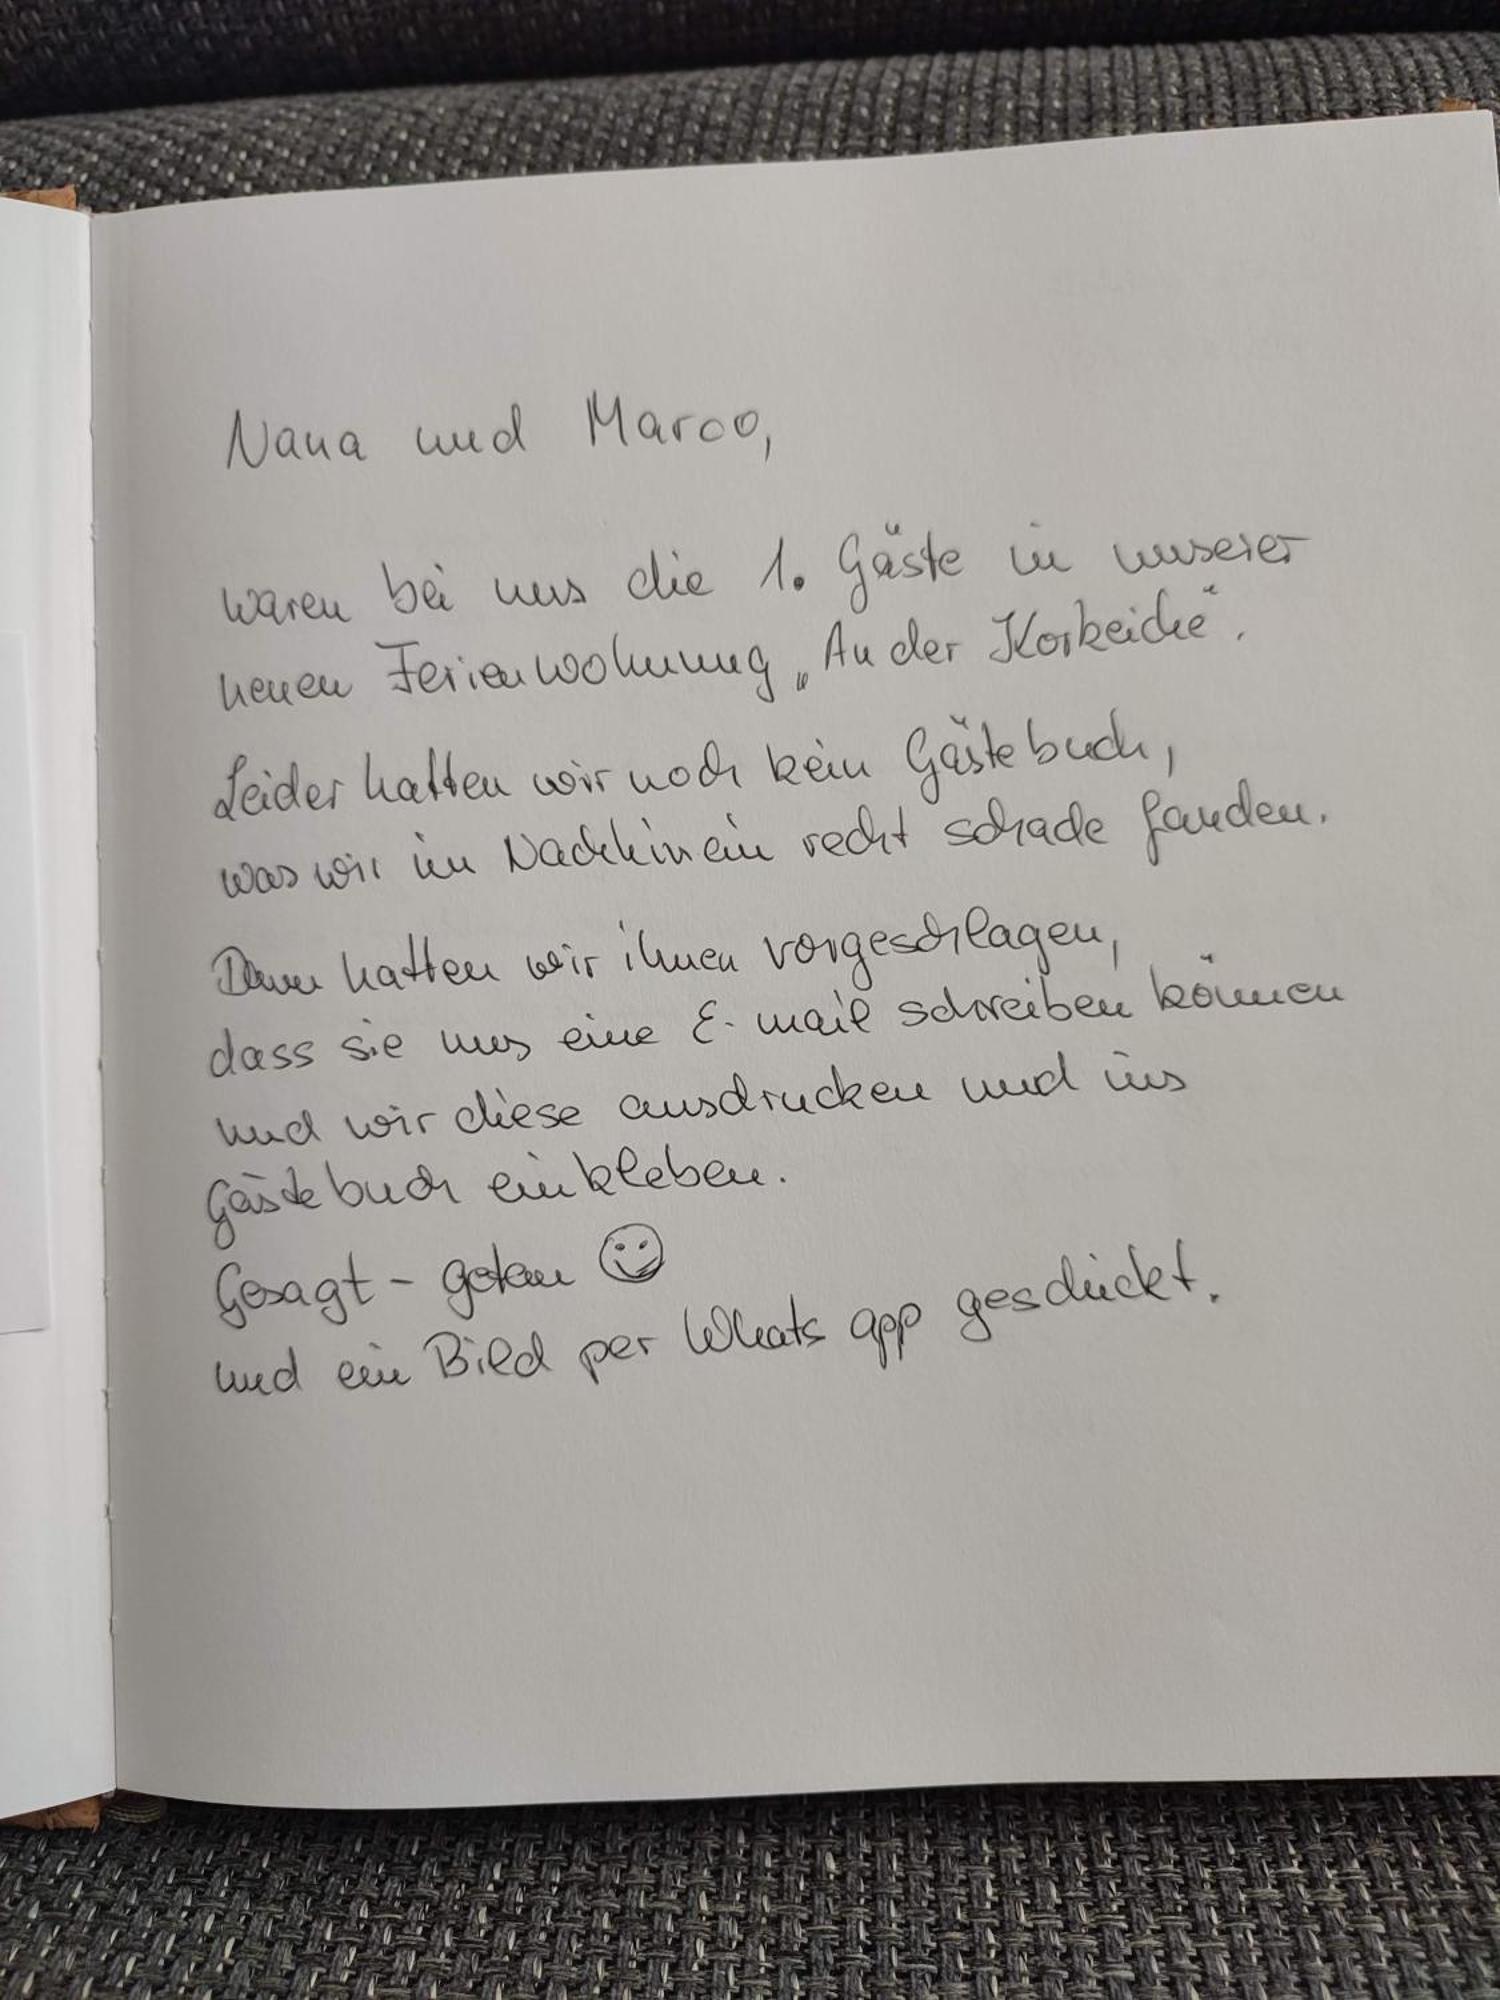 Nana und Marco,
waren bei uns die 1. Gäste in unserer
neuen Ferienwohnung „An der Korkeiche".
Leider hatten wir noch kein Gästebuch,
was wir im Nachhinein recht schade fanden.
Dann hatten wir ihnen vorgeschlagen,
dass sie uns eine E-mail schreiben können
und wir diese ausdrucken und ins
Gästebuch einkleben.
Gesagt - getan ☺
und ein Bild per Whats app geschickt.